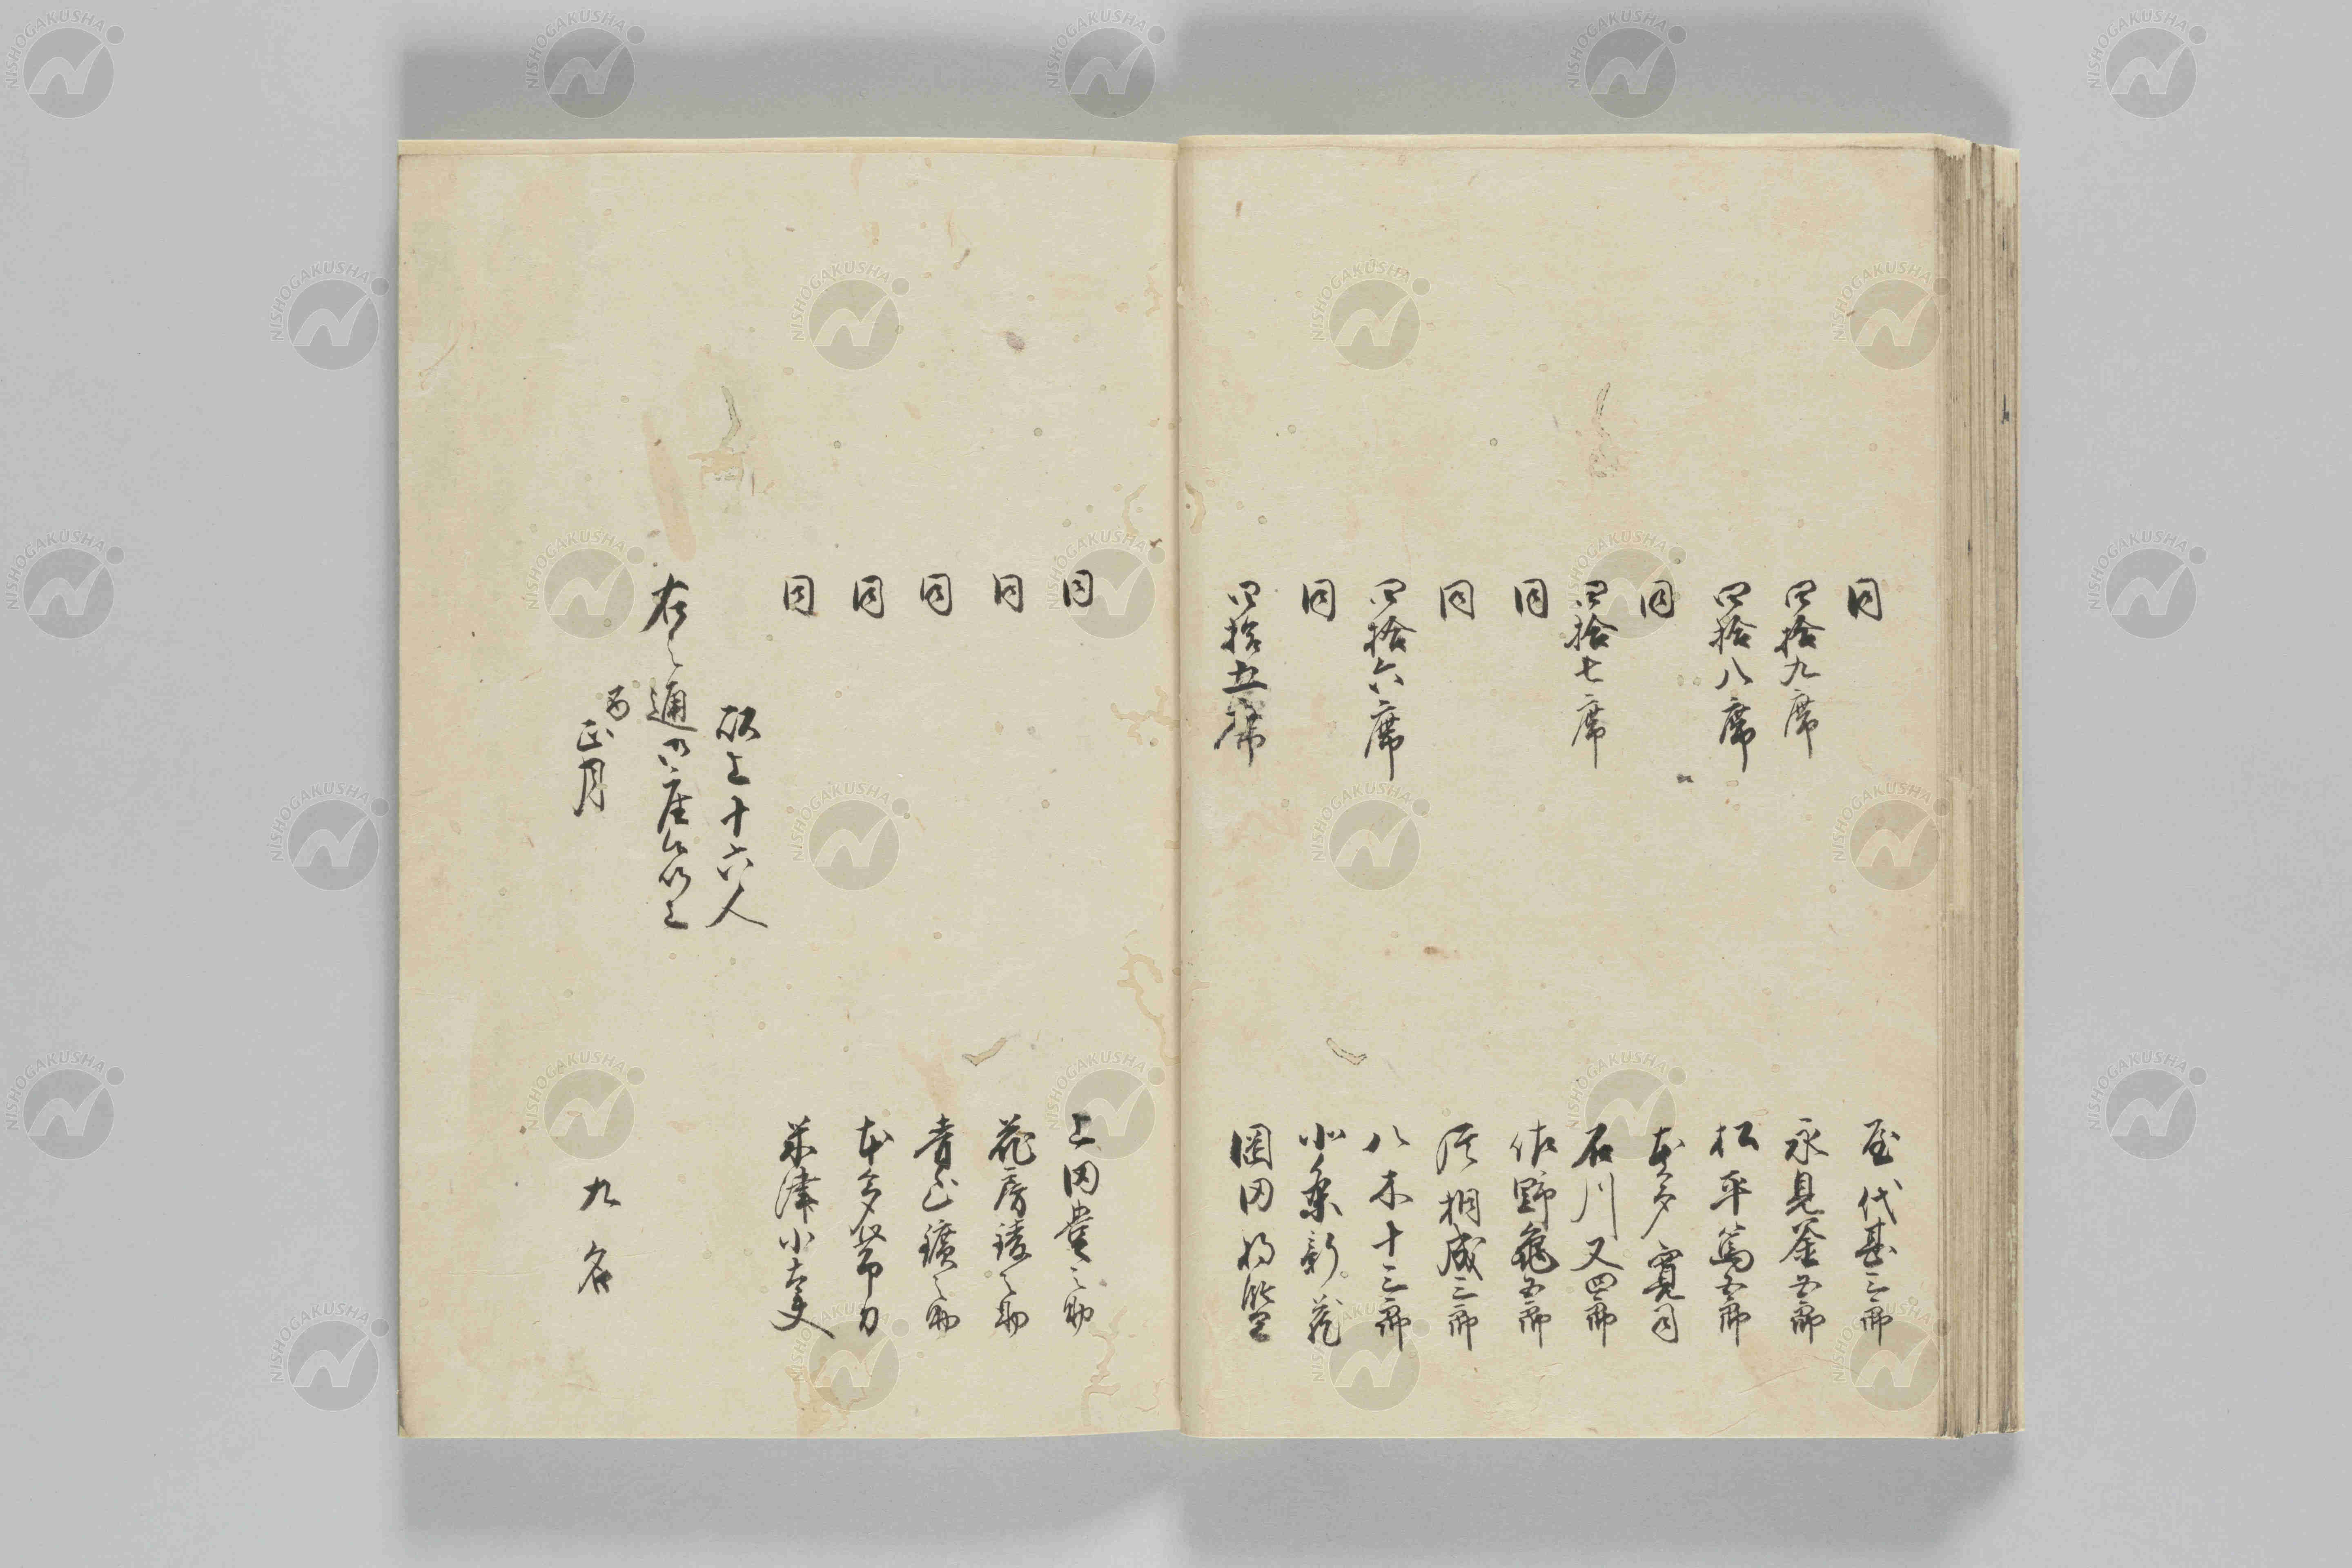 同 屋代甚三郎
四拾九席 永見釜五郎
四拾八席 松平篤五郎
同 本多寛司
四拾七席 石川又四郎
同 佐野亀五郎
同 相成三郎
四拾六席 八木十三郎
同 小条新蔵
四拾五席 岡田将監
同 上田豊之助
同 花房 之助
同 青山鐄之助
同 本多帯刀
同 米津小大夫
〆上十六人
右之通御座候以上
正月
九名
NISHOGAKUSHA